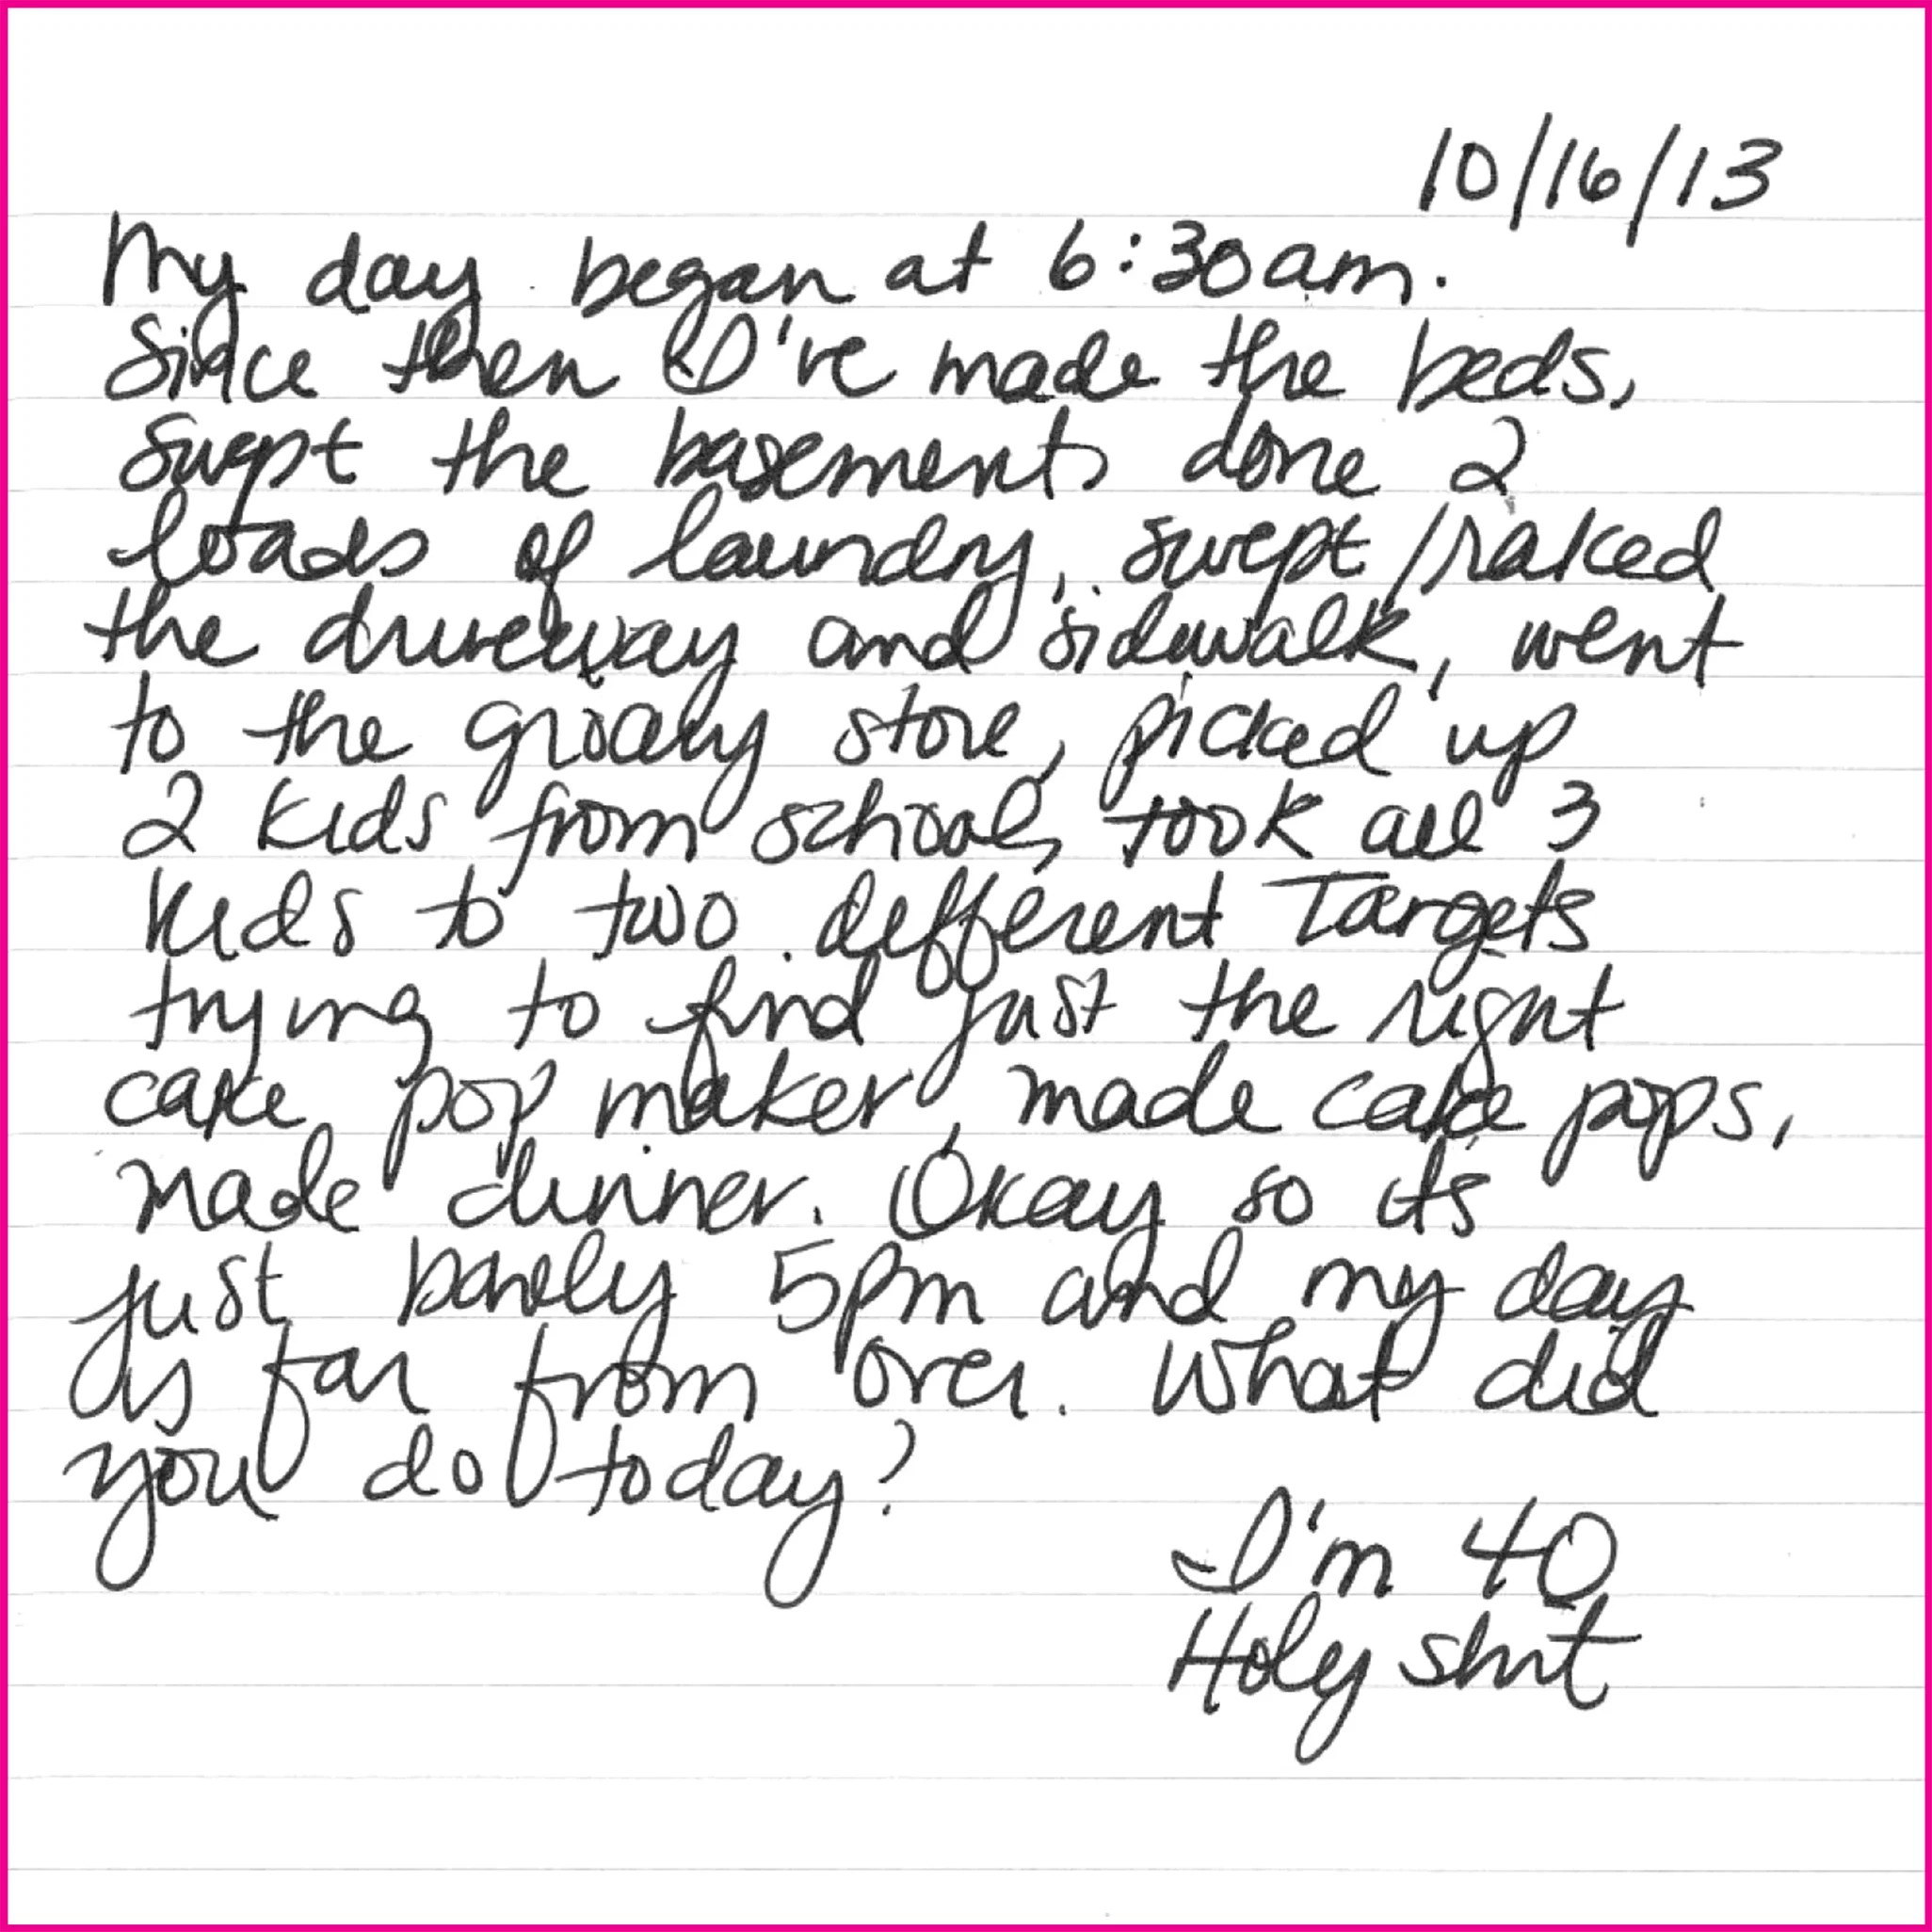 10/16/13
My day began at 6:30am.
Since then I've made the beds,
swept the basement, done 2
loads of laundry, swept/raked
the driveway and sidewalk, went
to the grocery store, picked up
2 kids from school, took all 3
kids to two different Targets
trying to find just the right
cake pop maker, made cake pops,
made dinner. Okay so its
just barely 5pm and my day
is far from over. What did
you do today?
I'm 40
Holy shit